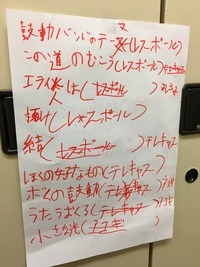 鼓動バンドのテーマ(レスポール)
この道のむこう(レスポール)テレキャス
エライ人は(レスポール)
輝け(レスポール)
績(レスポール)テレキャス
ぼくの好きなもの(テレキャス)
ボクの鼓動(テレキャス)アコギ
うたうざくろ(テレキャス)アコギ
小さな光(アコギ)